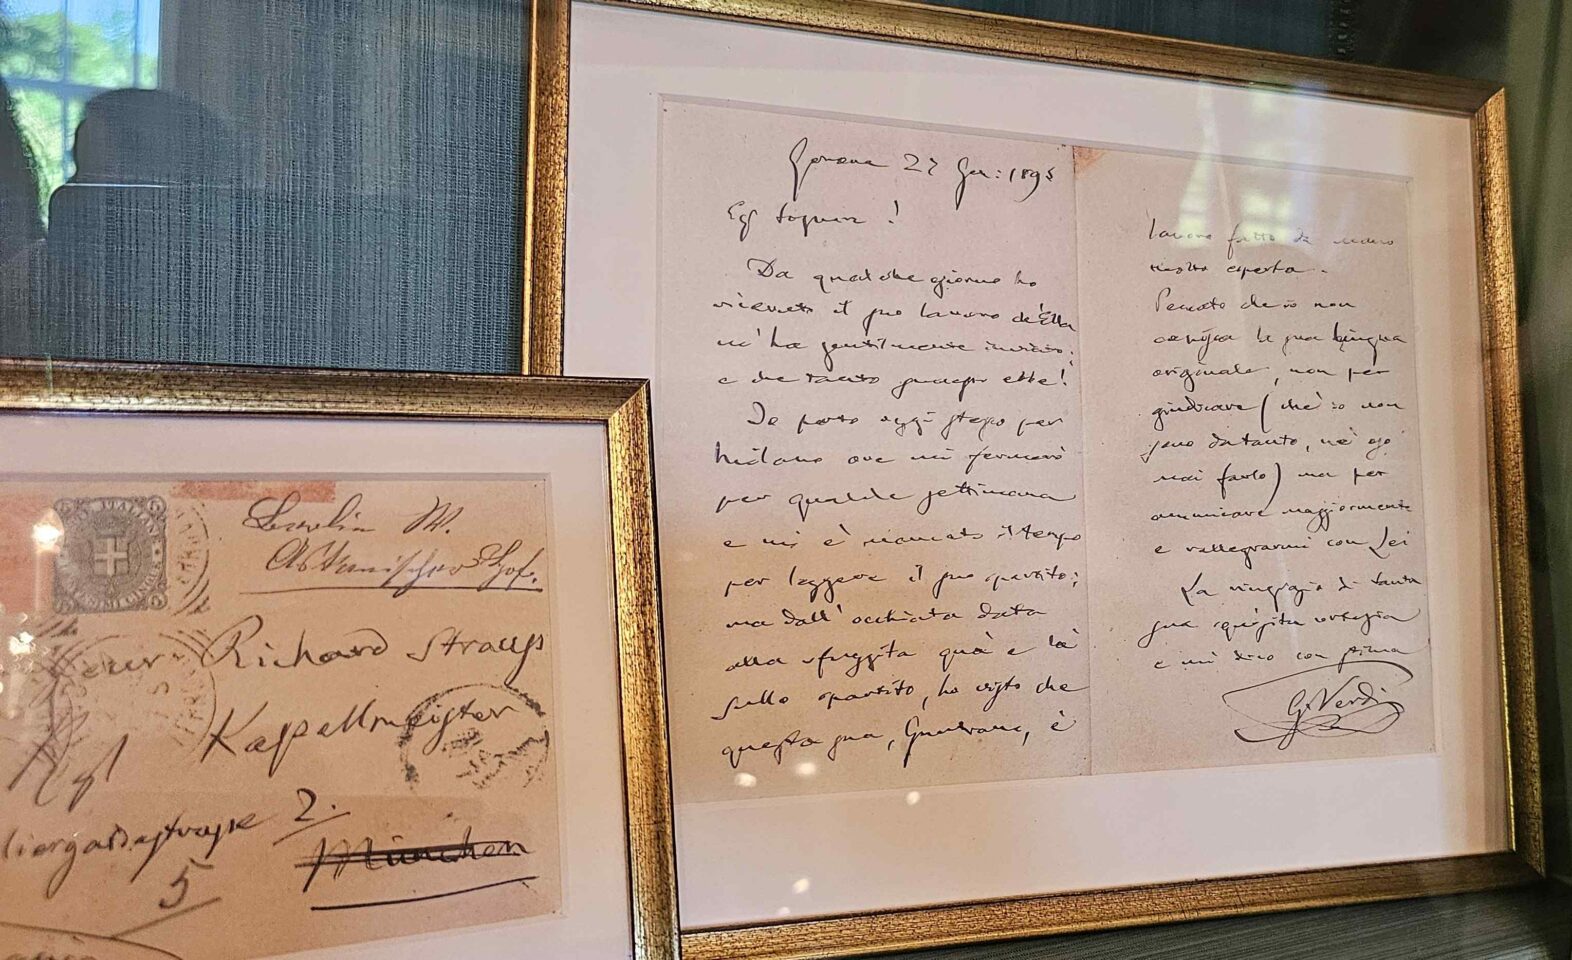 Genova 27 Gen: 1895
Eg Signore!
Da qualche giorno ho
ricevuto il suo lavoro ch'Ella
m'ha gentilmente inviato;
e che tanto successo ebbe!
Io parto oggi stesso per
Milano ove mi fermerò
per qualche settimana
e mi è mancato il tempo
per leggere il suo spartito;
ma dall'occhiata data
alla sfuggita quà e là
sullo spartito, ho visto che
questo suo, Guntram, è
lavoro fatto da mano
molto esperta.
Peccato che io non
conosca la sua lingua
originale, non per
giudicare (chè io non
sono da tanto, nè oso
mai farlo) ma per
ammirare maggiormente
e rallegrarmi con Lei
La ringrazio di tanta
sua squisita cortesia
e mi dico con stima
G. Verdi
Berlin W.
Askanischer Hof.
Herrn Richard Strauss
Kapellmeister
2.
München
5